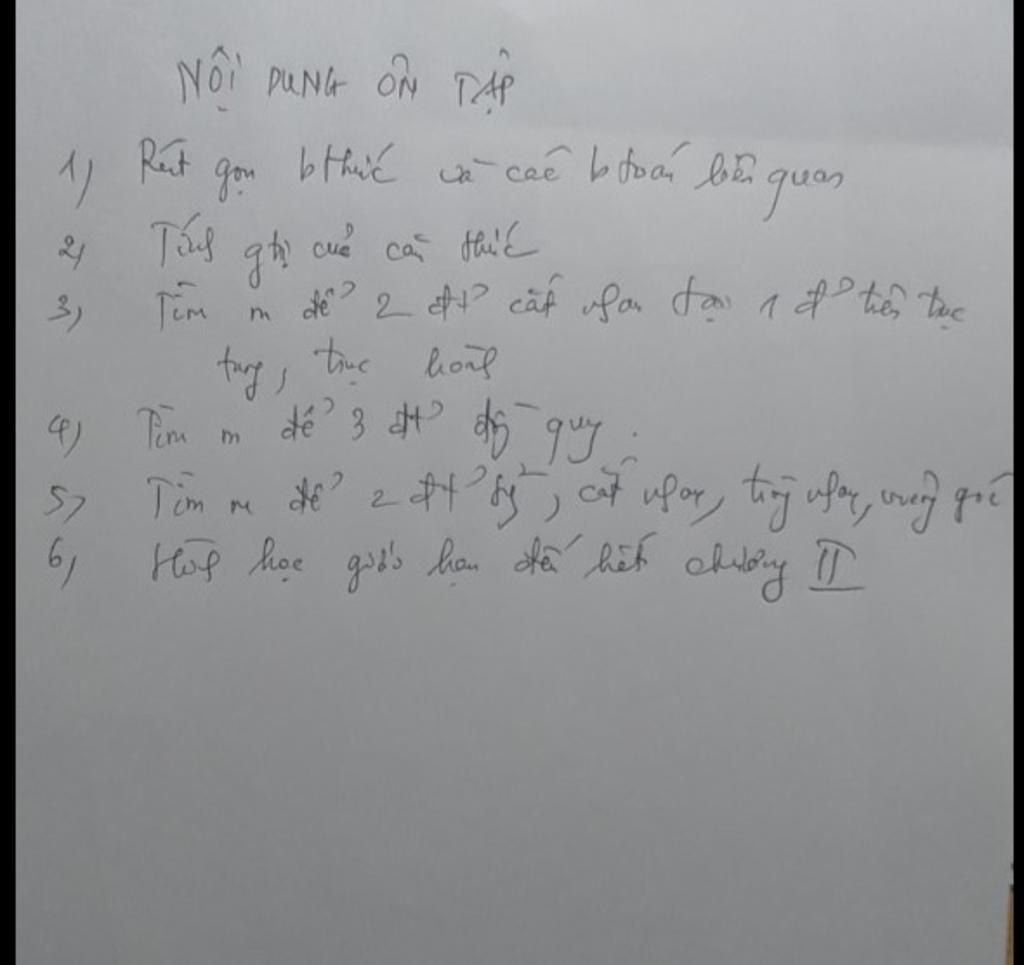 NỘI DUNG ÔN TẬP
1) Rút gọn bthức và các btoán liên quan
2) Tính gtrị của căn thức
3) Tìm m để 2 đt² cắt nhau tại 1 đ² trên trục
tung, trục hoành
4) Tìm m để 3 đt² đồng quy.
5) Tìm m để 2 đt² //, cắt nhau, trùng nhau, vuông góc
6) Hình học giới hạn đến hết chương II